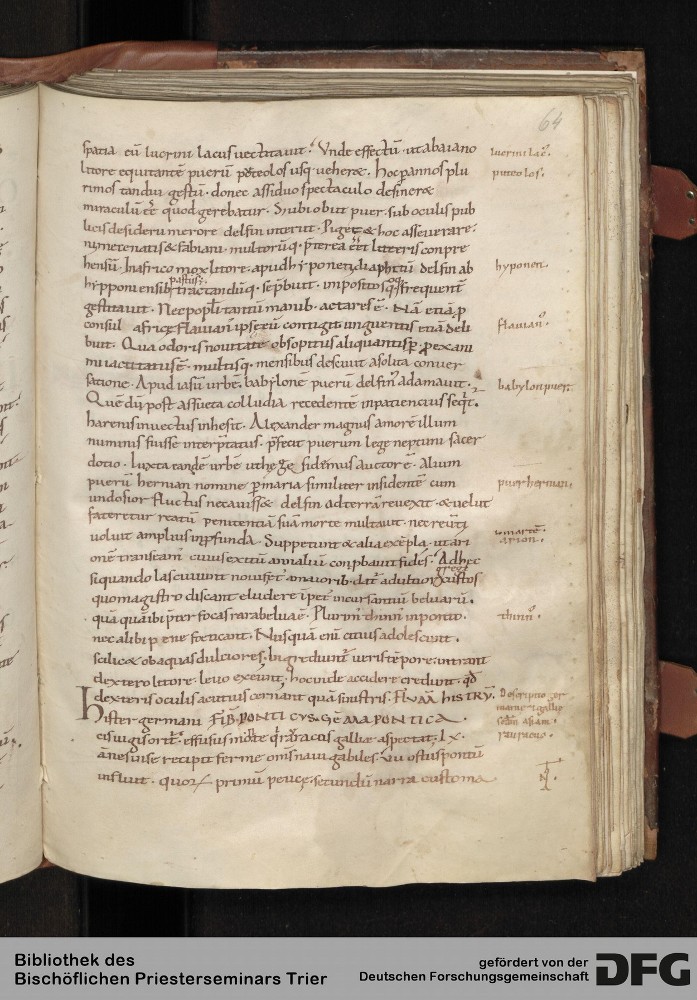 64
spatia eũ lucrini lacus uectitauit. Vnde effectũ ut abaiano
litore equitantẽ puerũ puteolos usq; ueheret. hoc p annos plu
rimos tandiu gestũ. donec assiduo spectaculo desineret
miraculũ eẽ quod gerebatur. S; ubi obiit puer. sub oculis pub
licis desiderii merore delfin interiit. Piget & hoc asseuerare.
ni mecenatis & fabiani. multorũq; p̃terea eẽt litteris conpre
hensũ. In africo mox litore. apud hyponem diaphitũ delfin ab
hypponiensib; pastus. tractandũq; se p̃buit. inpositos q̃q; frequent
gestitauit. Nec popłi tantũ manib; acta res ẽ. Nã etiã p
consul africę flauianus ipse eũ contigit. unguentis etiã deli
buit. Qua odoris nouitate obsopitus aliquantisp; p exani
mi iactitatus ẽ. multisq; mensibus desciuit asolita conuer
satione. Apud iasũ urbẽ. babylonẽ puerũ delfin adamauit.
Quẽ dũ post assueta colludia recedentẽ inpatiencius seq̃t.
harenis inuectus inhesit. Alexander magnus amorẽ illum
numinis fuisse interp̃tatus. p̃fecit puerum lege neptuni sacer
dotio. Iuxta eandẽ urbẽ ut hegesidemus auctor ẽ. Alium
puerũ hernian nomine p maria similiter insidentẽ cum
undosior fluctus necauisset delfin ad terrã reuexit. & uelut
fateretur reatũ penitentiã suã morte multauit. nec reuti
uoluit amplius in p̃funda. Suppetunt & alia exẽpla. ut ari
onẽ transeam. cuius exitũ annaliũ conpbauit fides. Ad hec
siquando lasciuiunt noui fet᷒ a maiorib; dat᷒ adultior gregi custos
quo magistro discant eludere impet᷒ incursantiũ beluarũ.
quã quã ibi p̃ter focas rara belua ẽ. Plurim᷒ thinn᷒ in ponto.
nec alibi pene foeticant. Nusquã enĩ citius adolescunt.
scilicet ob aquas dulciores. Ingrediunt᷒ ueris tẽpore. intrant
dextero litore. leuo exeunt. hoc inde accidere credunt. qd̃
dexteris oculis acutius cernant quã sinistris. FLVMĀ HISTRV.
Hister germani FIB. PONTICVS. GEMA PONTICA.
eis iugis orit᷒. effusus monte q̃ rauracos gallię aspectat. LX.
ãnes in se recipit ferme om̃s nauigabiles. VII. ostiis pontũ
influit. quoꝝ primũ peuce. secundũ naracustoma
lucrini lac᷒.
puteolos.
hyponen.
flauian᷒.
babylon puer.
puer hernian.
arion.
thinn᷒.
Descriptio ger
rauracus.
Bibliothek des
Bischöflichen Priesterseminars Trier
gefördert von der
Deutschen Forschungsgemeinschaft
DFG